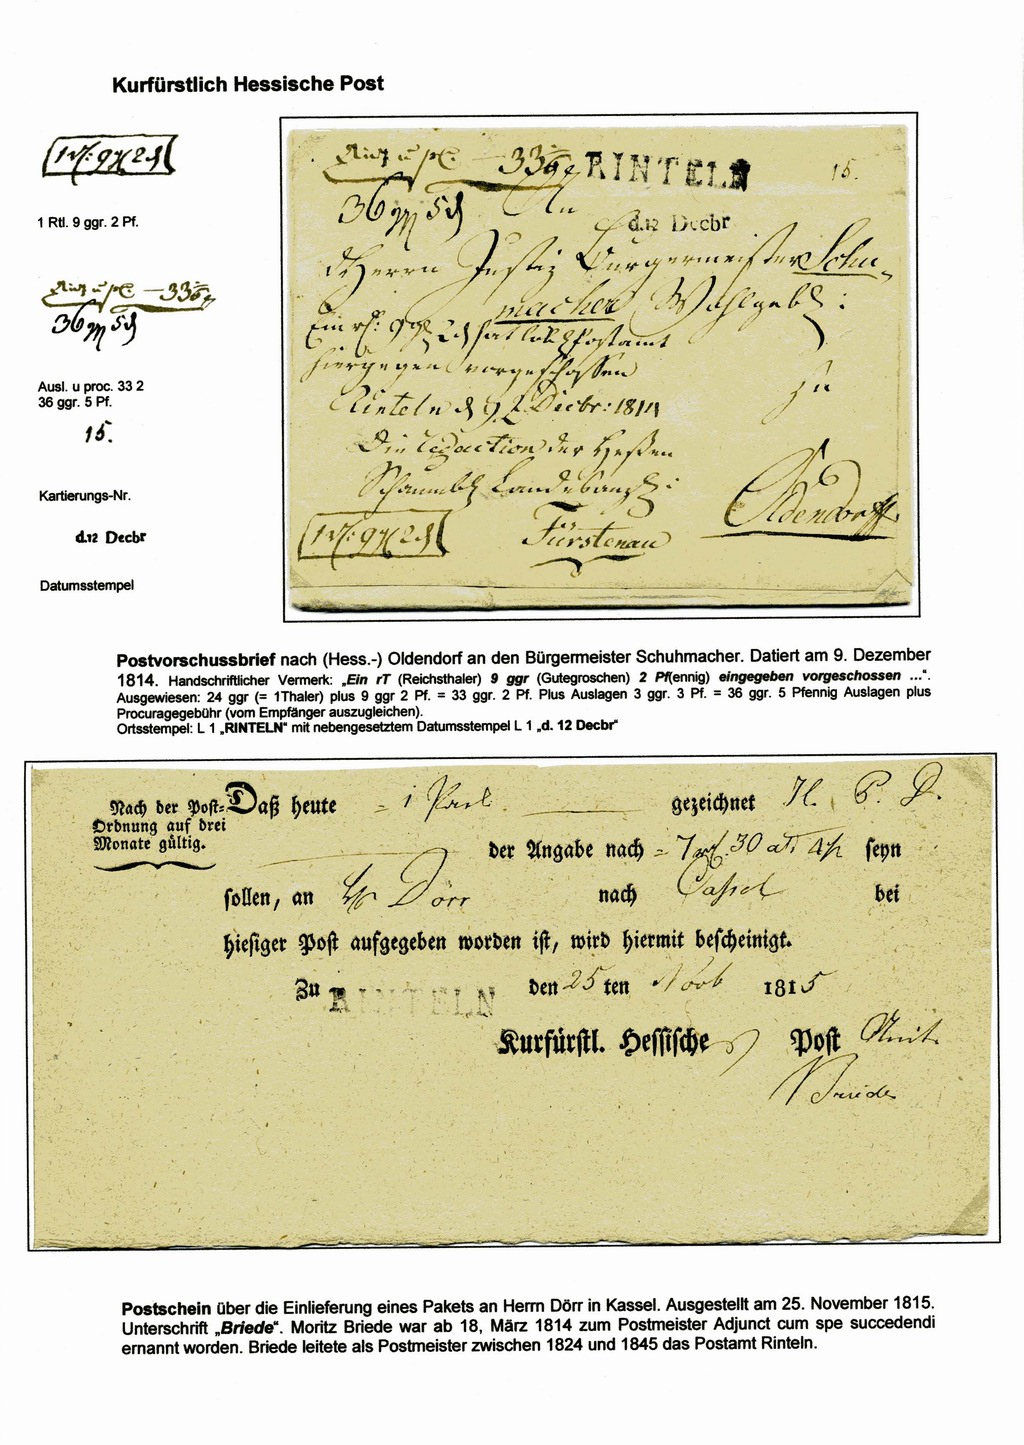 Kurfürstlich Hessische Post
1 Rtl. 9 ggr. 2 Pf.
Ausl. u proc. 33 2
36 ggr. 5 Pf.
15.
Kartierungs-Nr.
d.12 Decbr
Datumsstempel
RINTELN
15.
d.12 Decbr
An
Herrn Justiz Burgermeister Schu-
macher Wohlgeb:
hiergegen vorgeschossen
zu
Rinteln d 9 t Decbr: 1814
Die Redaction der Heßen
Oldendorff
Fürstenau
Postvorschussbrief nach (Hess.-) Oldendorf an den Bürgermeister Schuhmacher. Datiert am 9. Dezember
1814. Handschriftlicher Vermerk: „Ein rT (Reichsthaler) 9 ggr (Gutegroschen) 2 Pf(ennig) eingegeben vorgeschossen ...“.
Ausgewiesen: 24 ggr (= 1Thaler) plus 9 ggr 2 Pf. = 33 ggr. 2 Pf. Plus Auslagen 3 ggr. 3 Pf. = 36 ggr. 5 Pfennig Auslagen plus
Procuragegebühr (vom Empfänger auszugleichen).
Ortsstempel: L 1 „RINTELN“ mit nebengesetztem Datumsstempel L 1 „d. 12 Decbr“
Nach der Post-
Ordnung auf drei
Monate gültig.
Daß heute = 1 Pack gezeichnet H. P. D.
der Angabe nach = 7 30 seyn
sollen, an Dörr nach Cassel bei
hiesiger Post aufgegeben worden ist, wird hiermit bescheinigt.
Zu RINTELN den 25 ten Novb 1815
Kurfürstl. Hessische Post Amt.
Briede
Postschein über die Einlieferung eines Pakets an Herrn Dörr in Kassel. Ausgestellt am 25. November 1815.
Unterschrift „Briede“. Moritz Briede war ab 18, März 1814 zum Postmeister Adjunct cum spe succedendi
ernannt worden. Briede leitete als Postmeister zwischen 1824 und 1845 das Postamt Rinteln.